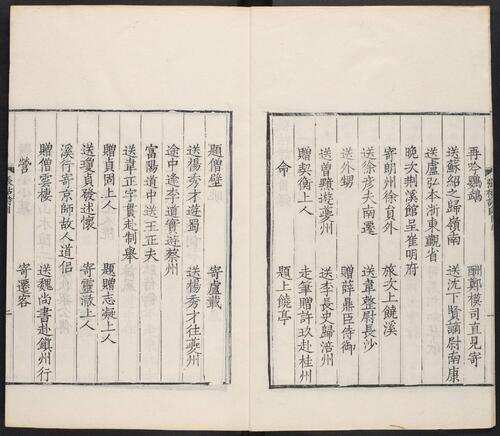 再吟鸚鵡 酬鄭模司直見寄
送蘇紹之歸嶺南 送沈下賢謫尉南康
送盧弘本浙東覲省
晚次荆溪館呈崔明府
寄朗州徐員外 旅次上饒溪
送徐彦夫南遷 送韋整尉長沙
送外甥 贈薛鼎臣侍御
送曾黯遊夔州 送李長史歸涪州
贈契衡上人 走筆贈許玖赴桂州
命 題上饒亭
題僧壁 寄盧載
送楊秀才遊蜀 送楊秀才往夔州
途中逢李道實遊蔡州
富陽道中送王正夫
送韋正字貫赴制舉
贈貞固上人 題贈志凝上人
送瓊貞發述懷 寄靈澈上人
溪行寄京師故人道侶
贈僧雲棲 送魏尚書赴鎮州行
營 寄遷客